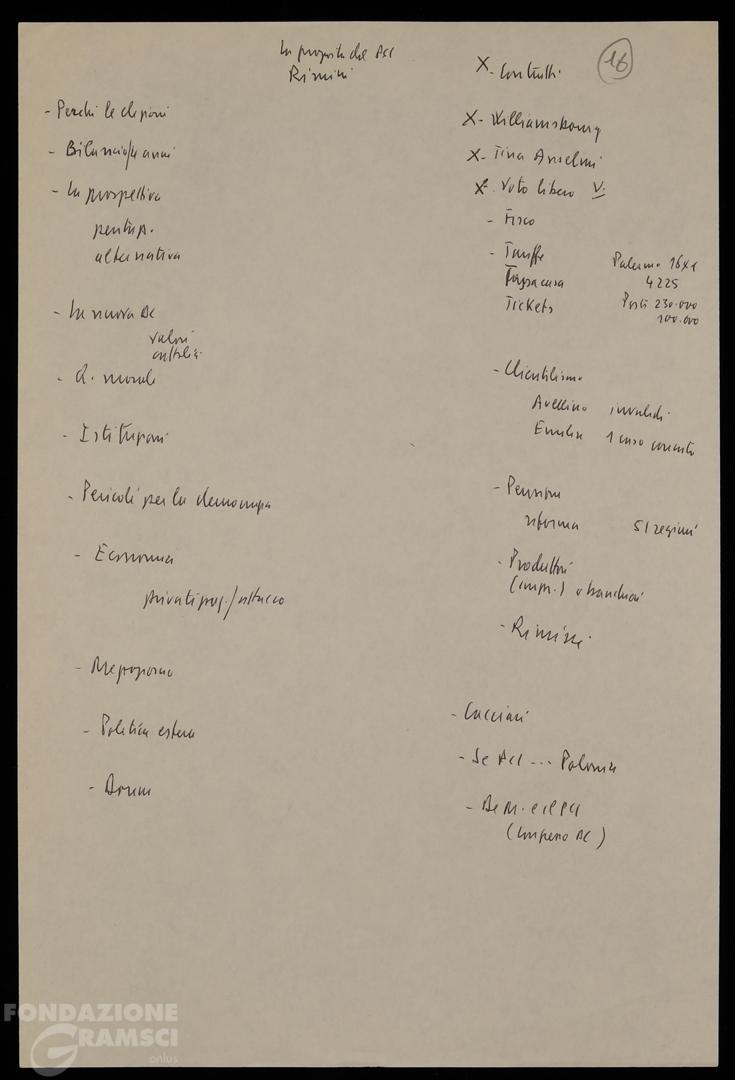 La proposta del PCI
Rimini
16
- Perché le elezioni
- Bilancio/4 anni
- La prospettiva
pentap.
alternativa
- La nuova DC
valori
- Q. morale
- Istituzioni
- Pericoli per la democrazia
- Economia
privati
- Mezzogiorno
- Politica estera
- Donne
X - Contratti
X - Williamsbourg
X - Tina Anselmi
X - Voto libero V.
- Fisco
- Tariffe Palermo 16x1
Tassa casa 4225
Tickets Posti 230.000
100.000
- Clientelismo
Avellino invalidi
Emilia 1 caso
- Pensioni
riforma 51 regimi
- Produttori
(impr.)
- Cacciari
- Se PCI ... Polonia
- De M. e il PCI
(Congresso DC)
FONDAZIONE
GRAMSCI
onlus